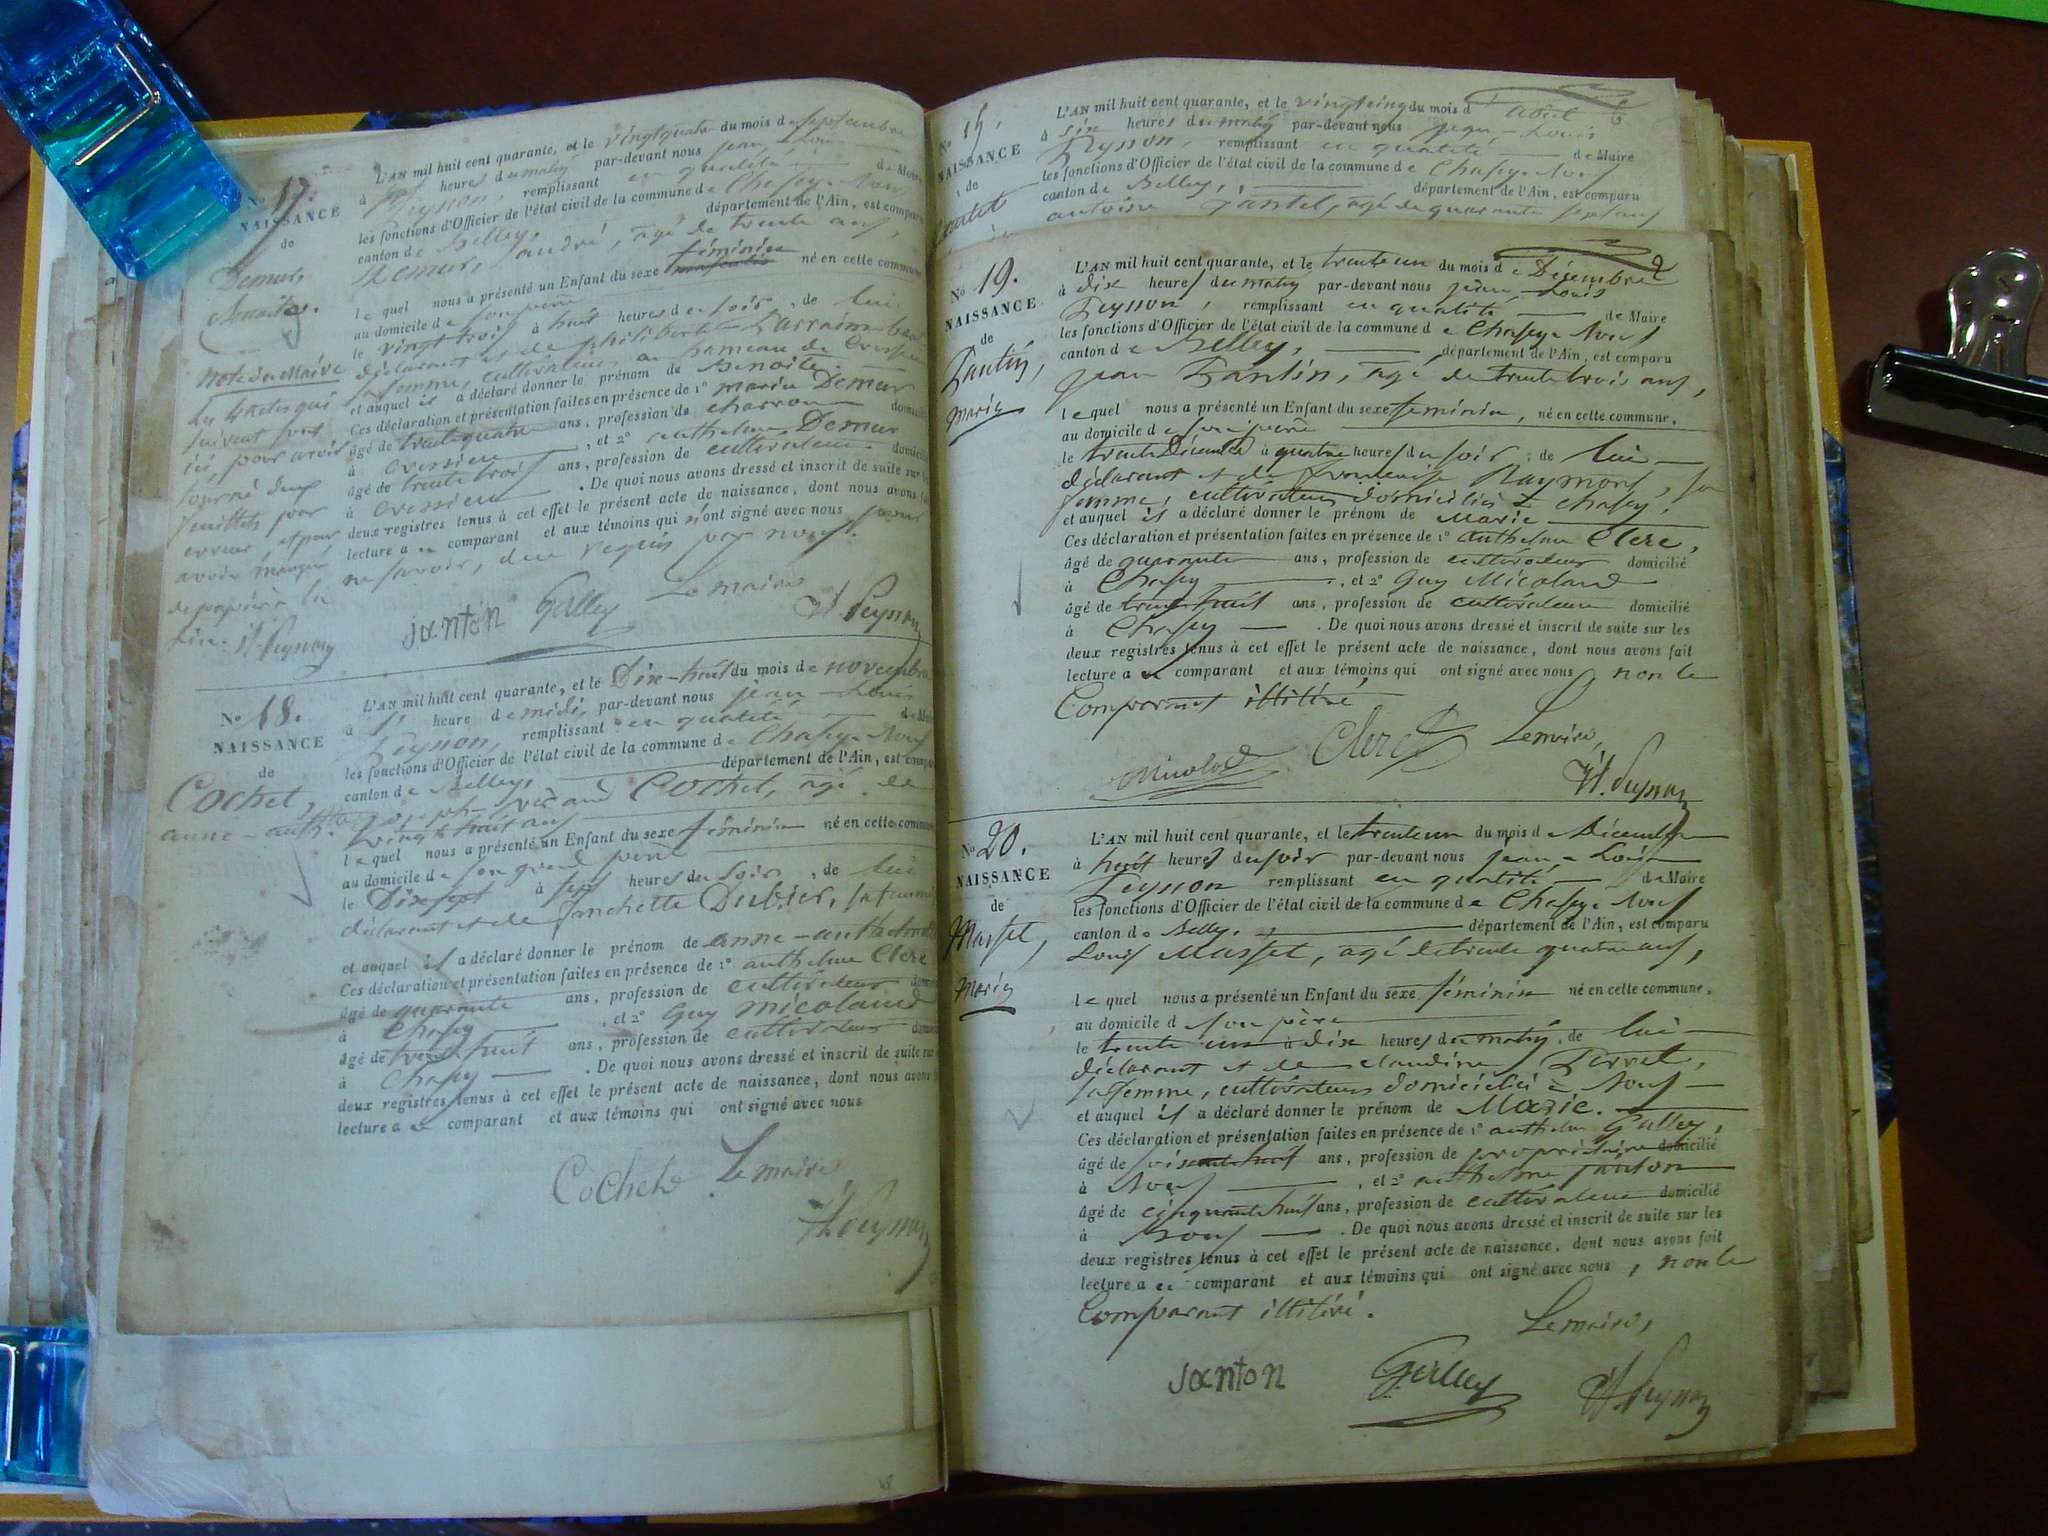 No 17.
NAISSANCE
de
Demur,
Benoite.
Note du Maire
Les 4 actes qui
suivent sont
ici, pour avoir
tourné deux
feuillets par
erreur, et pour
avoir manqué
de papier à la
fin. J. L. Peysson
L'AN mil huit cent quarante, et le vingt quatre du mois de septembre
à sept heures du matin par-devant nous jean-Louis
Peysson, remplissant en qualité de Maire
les fonctions d'Officier de l'état civil de la commune de Chazey-Bons
canton de Belley, département de l'Ain, est comparu
Demur, andré, agé de trente ans,
lequel nous a présenté un Enfant du sexe féminin né en cette commune
au domicile de son père
le vingt trois à huit heures du soir, de lui
déclarant et de philiberte
sa femme, cultivateurs au hameau de Cressieu
et auquel il a déclaré donner le prénom de Benoite.
Ces déclaration et présentation faites en présence de 1° marin Demur
âgé de trente quatre ans, profession de charron domicilié
à cressieu, et 2° anthelme Demur
âgé de trente trois ans, profession de cultivateur domicilié
à cressieu. De quoi nous avons dressé et inscrit de suite sur les
deux registres tenus à cet effet le présent acte de naissance, dont nous avons fait
lecture au comparant et aux témoins qui n'ont signé avec nous pour
ne savoir, de ce requis par nous.
janton Galley Le maire
J. L. Peysson
No 18.
NAISSANCE
de
Cochet,
anne-anth.
L'AN mil huit cent quarante, et le Dix-huit du mois de novembre
à 1 heure de midi, par-devant nous jean-Louis
Peysson, remplissant en qualité de Maire
les fonctions d'Officier de l'état civil de la commune de Chazey-Bons
canton de Belley, département de l'Ain, est comparu
joseph Cochet, agé de
vingt huit ans
lequel nous a présenté un Enfant du sexe féminin né en cette commune
au domicile de son grand père
le Dix sept à sept heures du soir, de lui
déclarant et de fanchette Dubier, sa femme
et auquel il a déclaré donner le prénom de anne-anthelmette
Ces déclaration et présentation faites en présence de 1° anthelme Clerc
âgé de quarante ans, profession de cultivateur domicilié
à Chazey, et 2° Guy micoland
âgé de trente huit ans, profession de cultivateur domicilié
à Chazey. De quoi nous avons dressé et inscrit de suite sur les
deux registres tenus à cet effet le présent acte de naissance, dont nous avons
lecture au comparant et aux témoins qui ont signé avec nous
Cochet Le maire
J. L. Peysson
No 15.
NAISSANCE
de
L'AN mil huit cent quarante, et le vingt cinq du mois d'août
à six heures du matin par-devant nous jean-Louis
Peysson, remplissant en qualité de Maire
les fonctions d'Officier de l'état civil de la commune de Chazey-Bons
canton de Belley, département de l'Ain, est comparu
antoine agé de quarante sept ans
No 19.
NAISSANCE
de
Pantin,
Marie
L'AN mil huit cent quarante, et le trente un du mois de Décembre
à dix heures du matin par-devant nous jean-Louis
Peysson, remplissant en qualité de Maire
les fonctions d'Officier de l'état civil de la commune de Chazey-Bons
canton de Belley, département de l'Ain, est comparu
jean Pantin, agé de trente trois ans,
lequel nous a présenté un Enfant du sexe féminin, né en cette commune.
au domicile de son père
le trente Décembre à quatre heures du soir, de lui
déclarant et de françoise Raymond, sa
femme, cultivateurs domiciliés à chazey,
et auquel il a déclaré donner le prénom de Marie
Ces déclaration et présentation faites en présence de 1° anthelme Clerc,
âgé de quarante ans, profession de cultivateur domicilié
à Chazey, et 2° Guy Micoland
âgé de trente huit ans, profession de cultivateur domicilié
à Chazey. De quoi nous avons dressé et inscrit de suite sur les
deux registres tenus à cet effet le présent acte de naissance, dont nous avons fait
lecture au comparant et aux témoins qui ont signé avec nous, non le
Comparant illitéré
Micoland Clerc Le maire,
J. L. Peysson
No 20.
NAISSANCE
de
Masset,
Marie
L'AN mil huit cent quarante, et le trente un du mois de Décembre
à huit heures du soir par-devant nous jean-Louis
Peysson remplissant en qualité de Maire
les fonctions d'Officier de l'état civil de la commune de Chazey-Bons
canton de Belley, département de l'Ain, est comparu
Louis Masset, agé de trente quatre ans,
lequel nous a présenté un Enfant du sexe féminin né en cette commune.
au domicile d son père
le trente un à dix heures du matin, de lui
déclarant et de claudine Perret,
sa femme, cultivateurs domiciliés à Bons
et auquel il a déclaré donner le prénom de Marie.
Ces déclaration et présentation faites en présence de 1° anthelme Galley,
âgé de soixante huit ans, profession de propriétaire domicilié
à Bons, et 2° anthelme janton
âgé de cinquante huit ans, profession de cultivateur domicilié
à Bons. De quoi nous avons dressé et inscrit de suite sur les
deux registres tenus à cet effet le présent acte de naissance, dont nous avons fait
lecture au comparant et aux témoins qui ont signé avec nous, non le
Comparant illitéré.
Le maire,
janton Galley J. L. Peysson